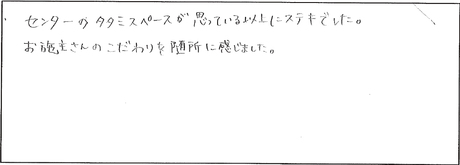 センターのタタミスペースが思っている以上にステキでした。
お施主さんのこだわりを随所に感じました。